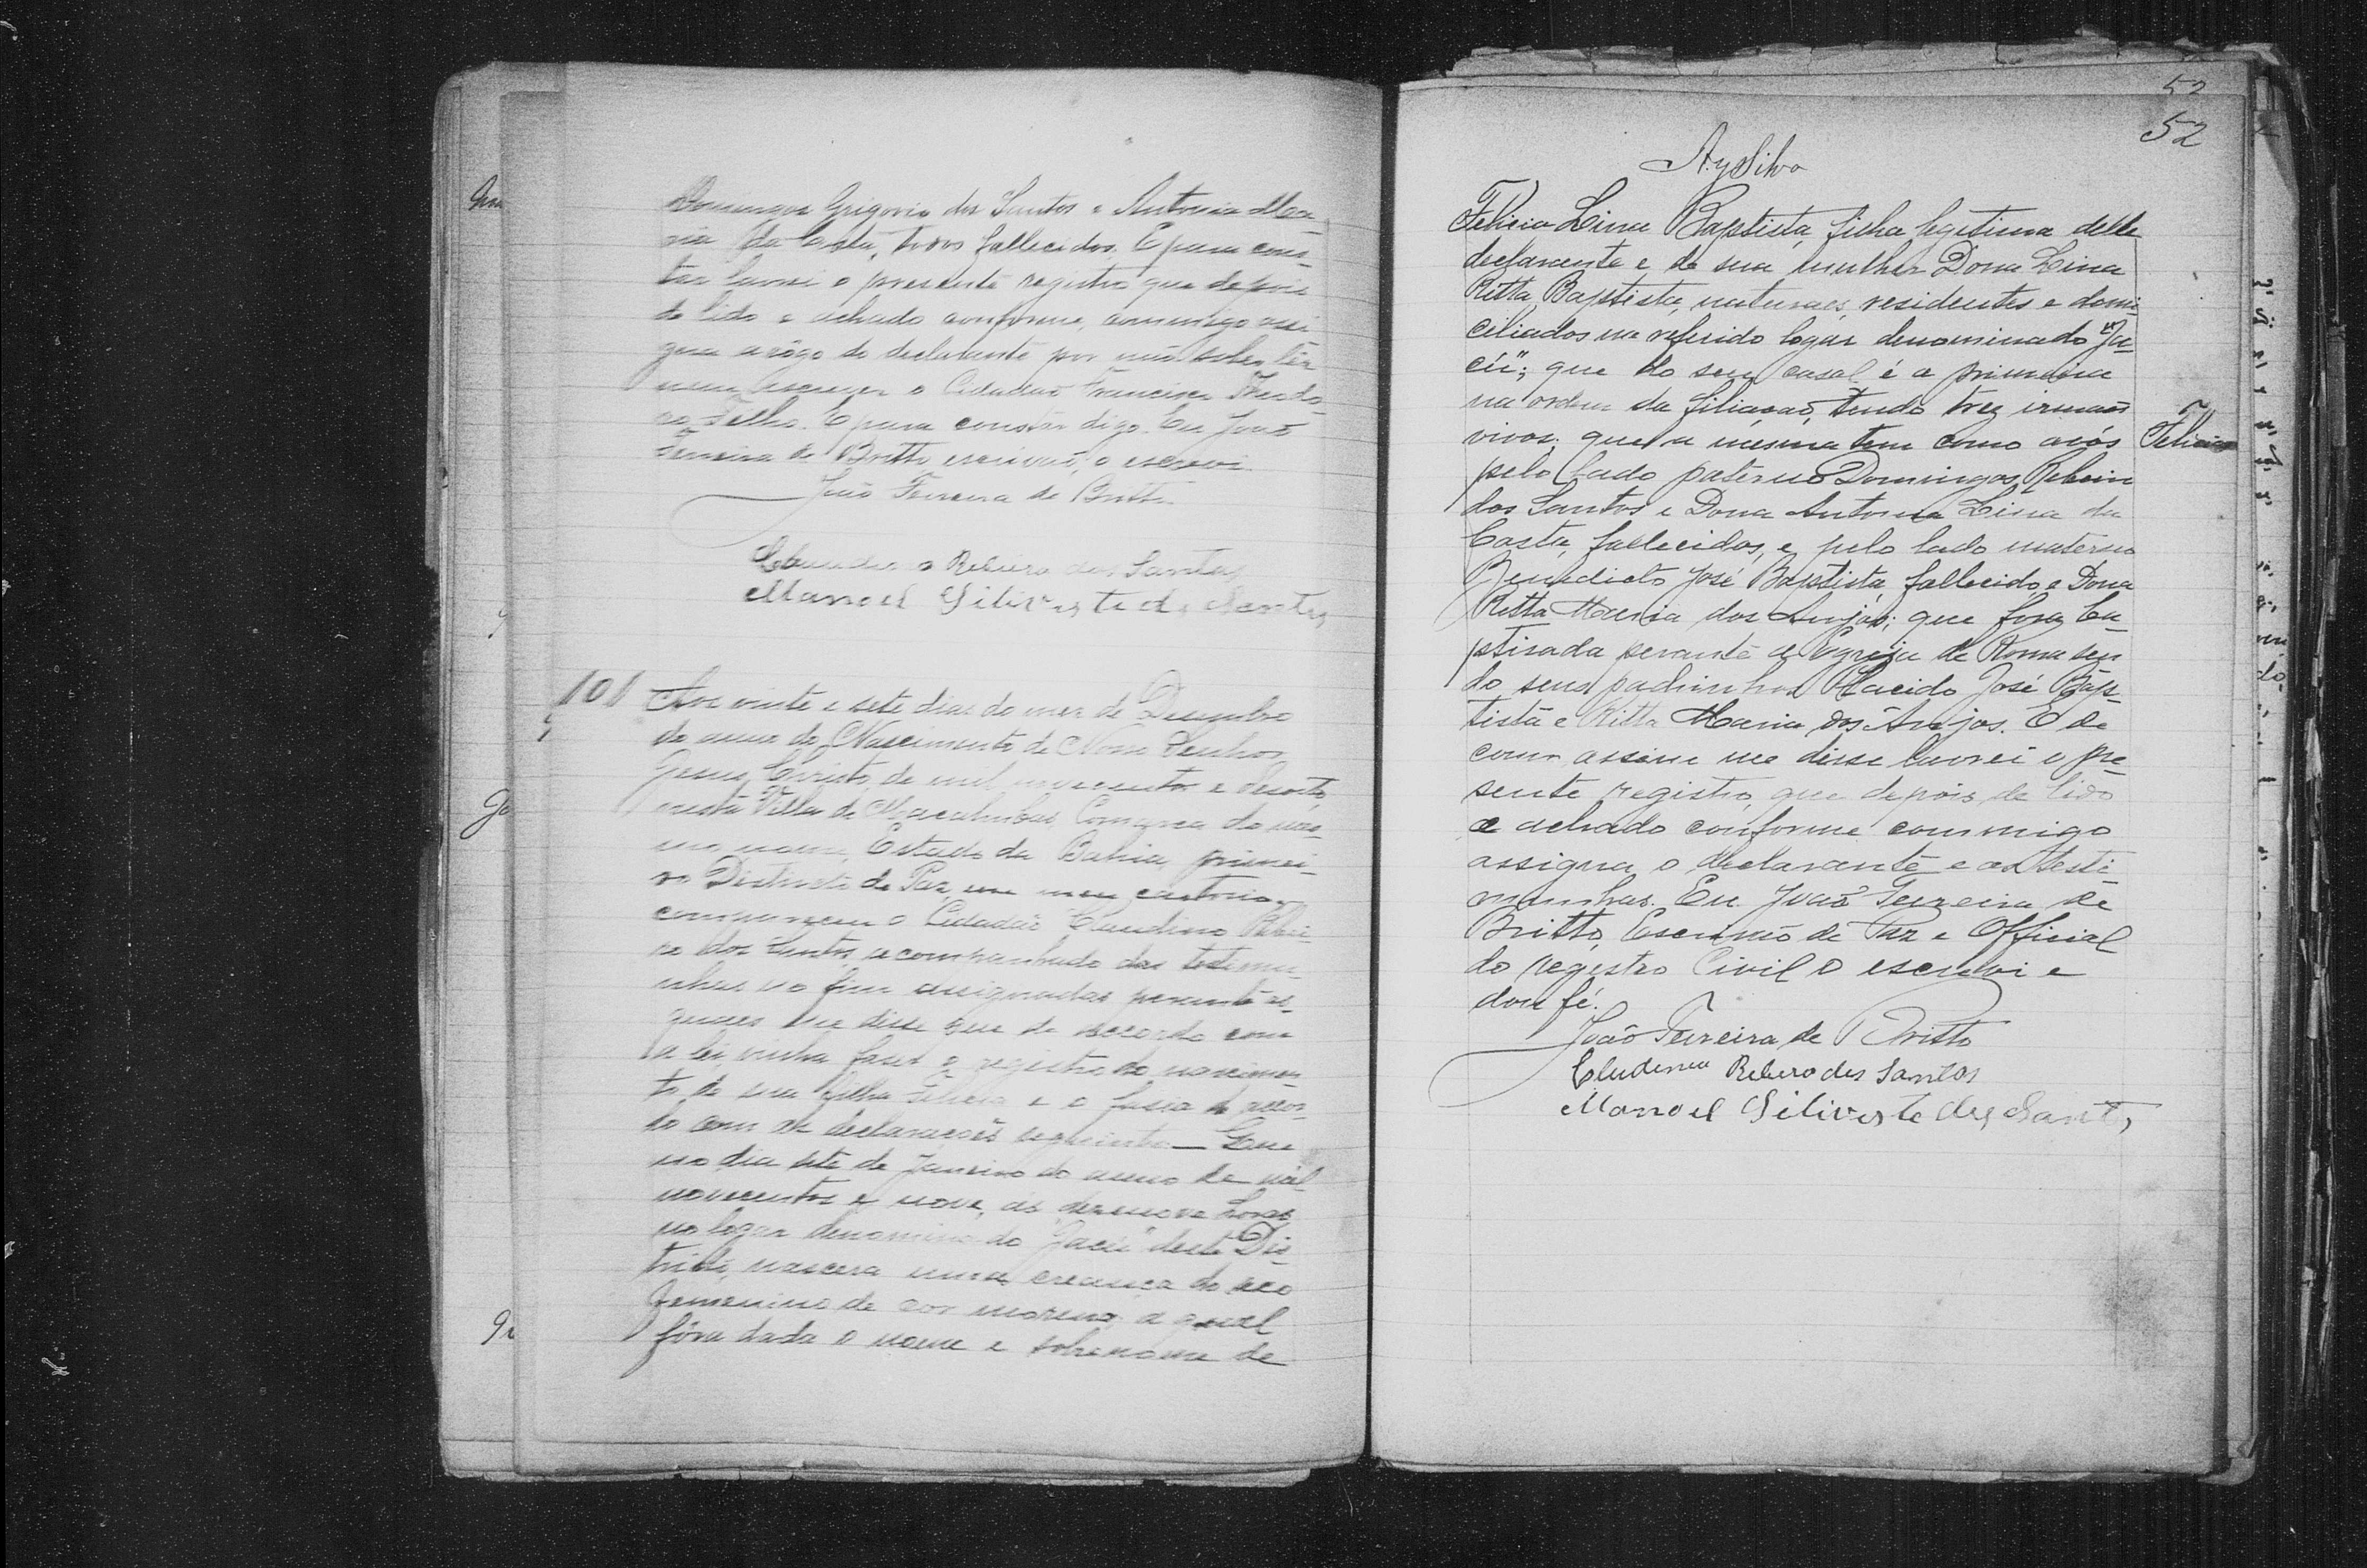 Domingos Grigorio dos Santos e Antonia Ma-
ria da Costa, todos fallecidos. E para cons-
tar lavrei o presente registro que depois
de lido e achado conforme, commigo assi-
gna a rôgo do declarante por não saber lêr
nem escrever o Cidadão Francisco
Filho. E para constar digo. Eu João
Ferreira de Britto escrivão, o escrevi.
João Ferreira de Britto
Ribeiro dos Santos
Manoel Siliveste dos Santos
101 Aos vinte e sete dias do mez de Desembro
do anno do Nascimento de Nosso Senhor
Jesus Christo, de mil novecentos e desoito,
nesta Villa de Macahubas, Comarca do mes-
mo nome, Estado da Bahia, primei-
ro Districto de Paz, em meu cartorio,
compareceu o Cidadão Claudino Ribei-
ro dos Santos, acompanhado das testemu-
nhas no fim assignadas, perante as
quaes me disse que de accordo com
a lei, vinha faser o registro do nascimen-
to de sua filha Felicia e o fasia de accor-
do com as declarações seguintes — Que
no dia sete de Janeiro do anno de mil
novecentos e nove, ás desenove horas
no logar denominado "Jacú" deste Dis-
tricto, nascera uma creança do seo
femenino de cor morena a qual
fôra dada o nome e sobrenome de
52
52
AySilva
Felicia Lina Baptista, filha legitima delle
declarante e de sua mulher Dona Lina
Ritta Baptista, naturaes, residentes e domi-
ciliados no referido logar denominado "Ja-
cú"; que do seu casal é a primeira
na ordem da filiação, tendo trez irmãos
vivos; que a mesma tem como avós
Felicia
pelo lado paterno Domingos Ribeiro
dos Santos e Dona Antonia Lina da
Costa, fallecidos, e pelo lado materno
Benedicto José Baptista, fallecido e Dona
Ritta Maria dos Anjos; que fora ba-
ptisada perante a Egreja de Roma sen-
do seus padrinhos Placido José Bap-
tista e Ritta Maria dos Anjos. E de
como assim me disse lavrei o pre-
sente registro, que depois de lido
e achado conforme commigo
assigna o declarante e as teste-
munhas. Eu João Ferreira de
Britto, Escrivão de Paz e Official
do registro Civil o escrevi e
dou fé.
João Ferreira de Britto
Ribero dos Santos
Manoel Siliveste dos Santos